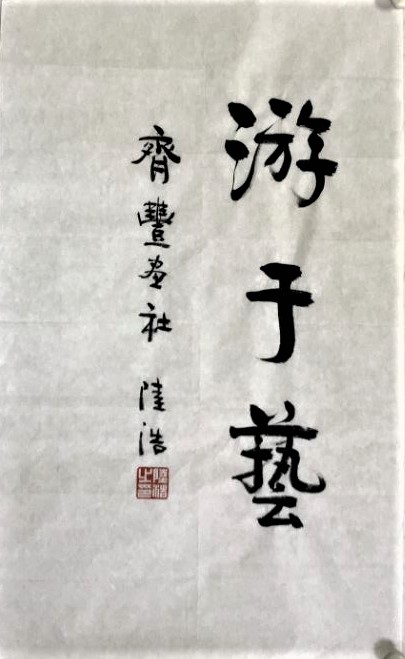 游于藝
齊豐畫社 陸浩